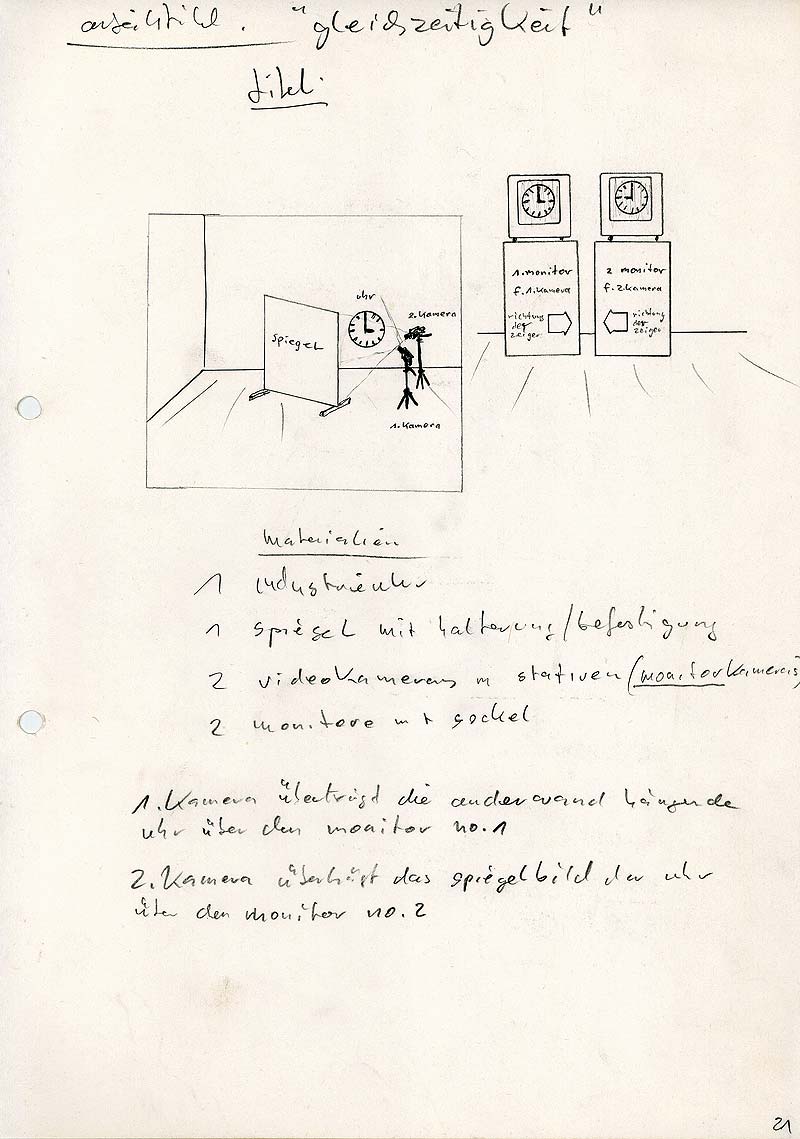 arbeitstitel. "gleichzeitigkeit"
titel:
uhr
2. kamera
spiegel
1. kamera
1. monitor
f. 1. kamera
richtung
der
zeiger
2 monitor
f. 2 kamera
richtung
der
zeiger
materialien
1 industrieuhr
1 spiegel mit halterung/befestigung
2 videokameras m stativen (monitorkameras)
2 monitore mit sockel
1. kamera überträgt die anderwand hängende
uhr über den monitor no. 1
2. kamera überträgt das spiegelbild der uhr
über den monitor no. 2
21